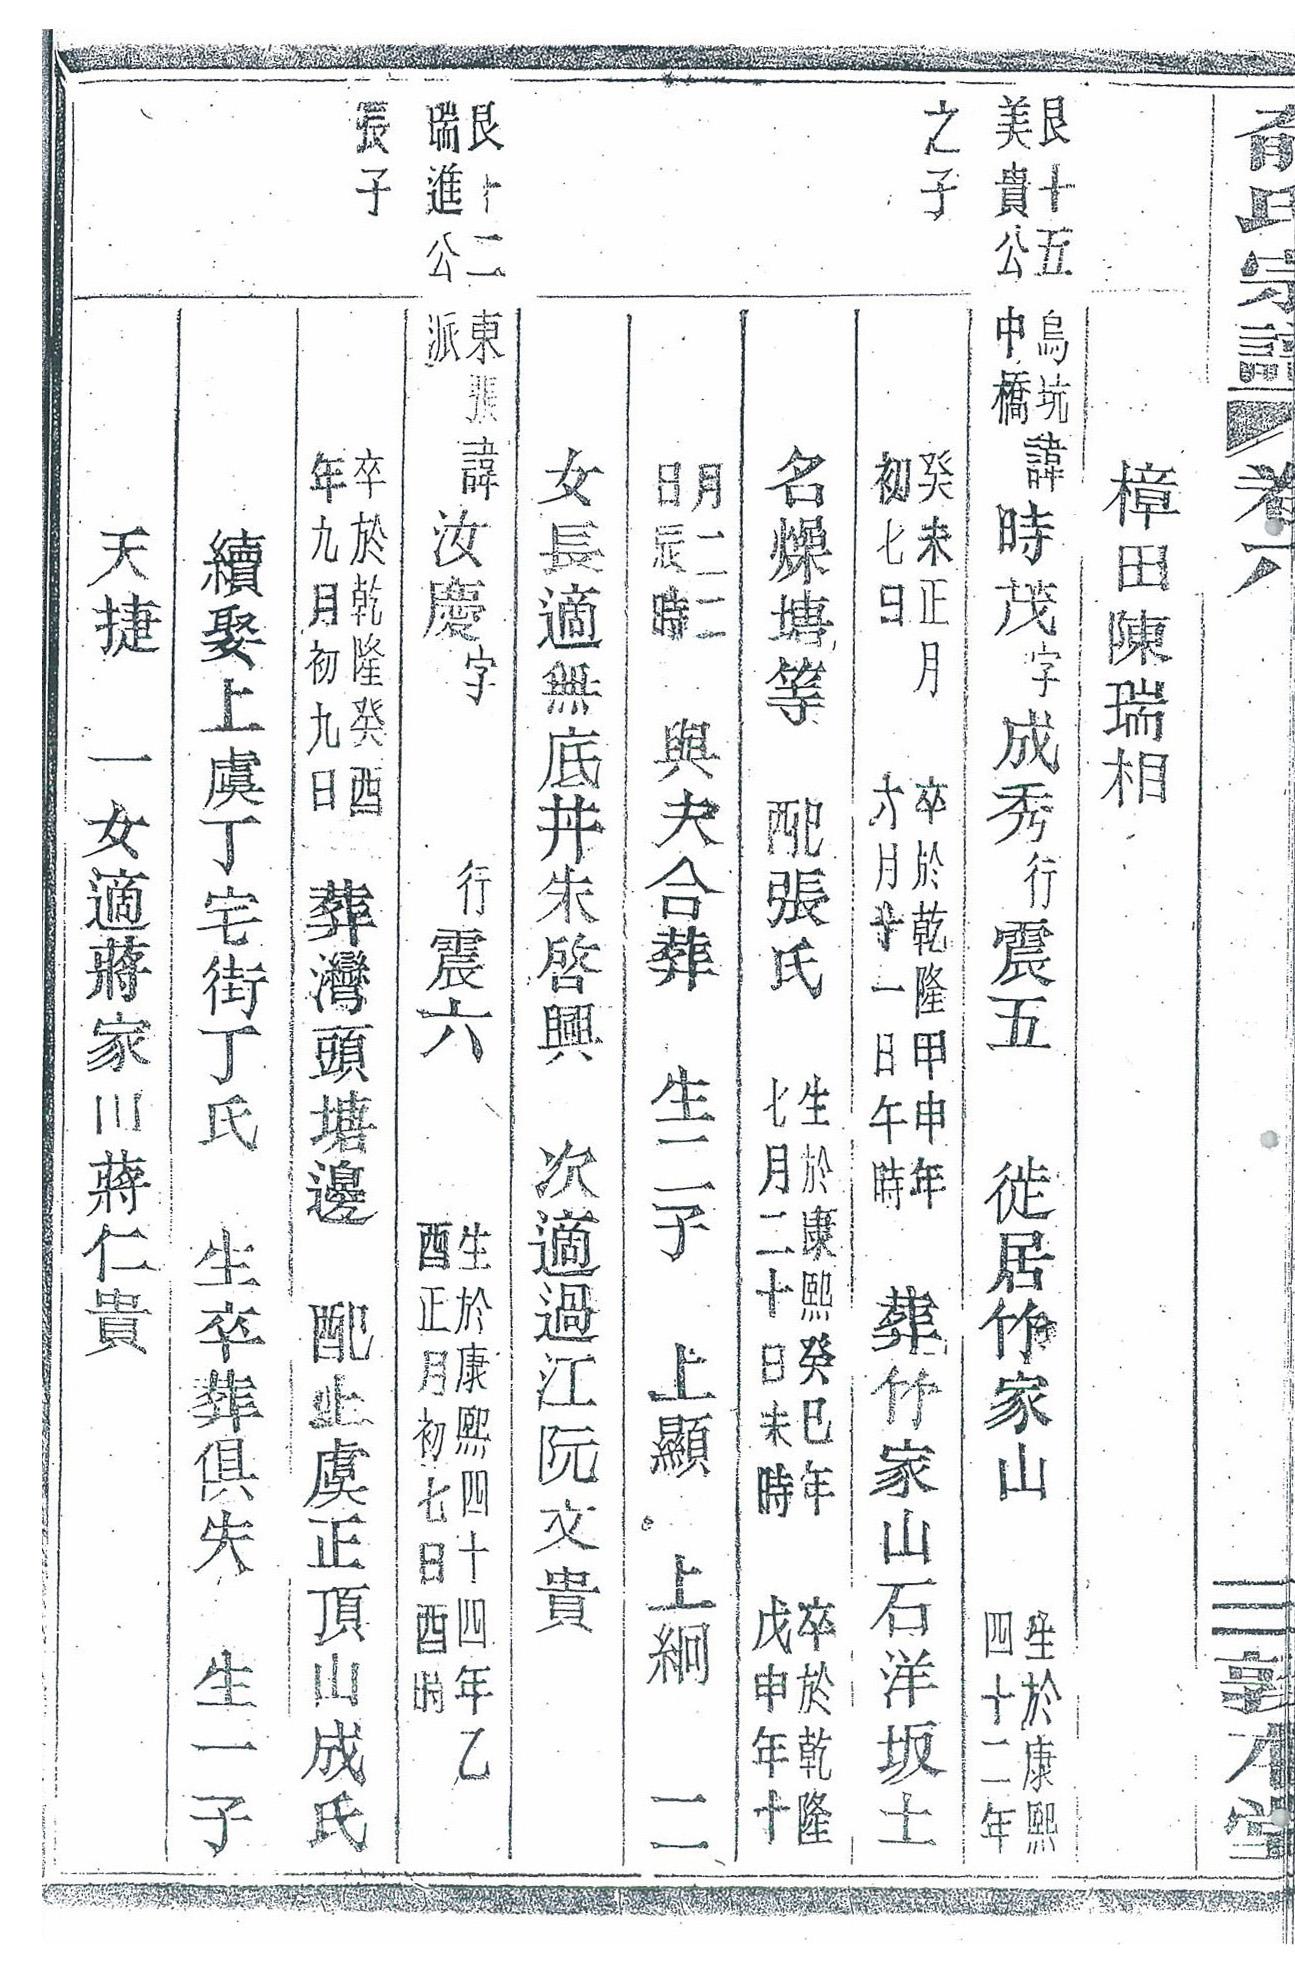 俞氏宗譜 卷六 三 敦本堂
樟田陳瑞相
艮十五
美貴公
烏坑
中橋
諱時茂字成秀行震五 徙居竹家山
生於康熙
四十二年
之子
癸未正月
初七日
卒於乾隆甲申年
六月廿一日午時
葬竹家山石洋坂土
名燥塘等 配張氏
生於康熙癸巳年
七月二十日未時
卒於乾隆
戊申年十
月二二
日辰時
與夫合葬 生二子 上顯 上絅 二
女長適無底井朱啓興 次適過江阮文貴
艮十二
瑞進公
東張
派
諱汝慶字 行震六
生於康熙四十四年乙
酉正月初七日酉時
長子
卒於乾隆癸酉
年九月初九日
葬灣頭塘邊 配上虞正頂山成氏
續娶上虞丁宅街丁氏 生卒葬俱失 生一子
天捷 一女適蔣家川蔣仁貴